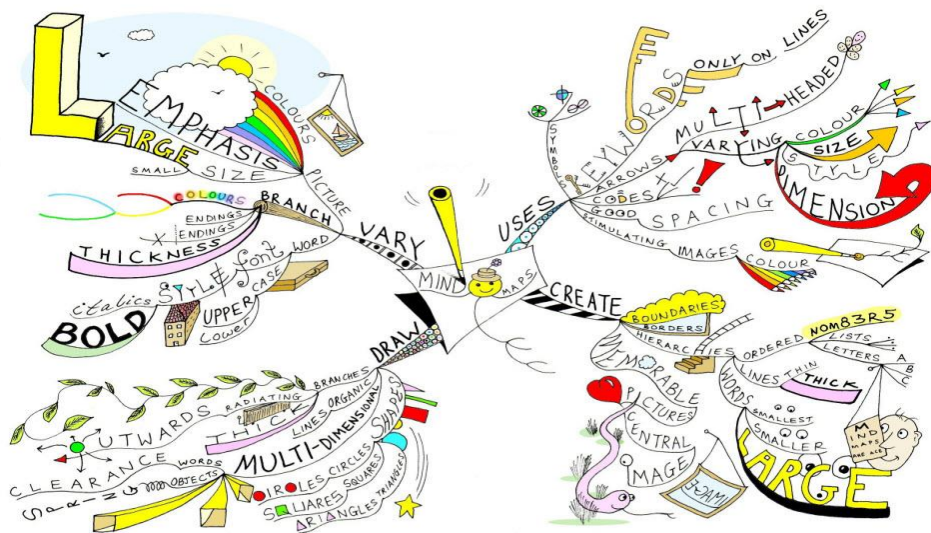 MIND MAPS
VARY
PICTURE
EMPHASIS
COLOURS
LARGE
SMALL
SIZE
BRANCH
COLOURS
ENDINGS
ENDINGS
THICKNESS
WORD
font
STYLE
italics
BOLD
CASE
UPPER
Lower
DRAW
BRANCHES
RADIATING
OUTWARDS
ORGANIC
LINES
THICK
SHAPES
MULTI-DIMENSIONAL
CIRCLES CIRCLES
SQUARES SQUARES
TRIANGLES TRIANGLES
WORDS
CLEARANCE
OBJECTS
SPRING
USES
SYMBOLS
KEYWORDS
ONLY ON LINES
ARROWS
MULTI HEADED
VARYING
COLOUR
SIZE
STYLE
DIMENSION
CODES
GOOD
SPACING
STIMULATING
IMAGES
COLOUR
CREATE
BOUNDARIES
BORDERS
HIERARCHIES
ORDERED
NOM83R5
LISTS
LETTERS
A
B
C
LINES
THIN
THICK
WORDS
SMALLEST
SMALLER
LARGE
MIND
MAPS
ARE ACE
MEMORABLE
PICTURES
CENTRAL
IMAGE
IMAGE